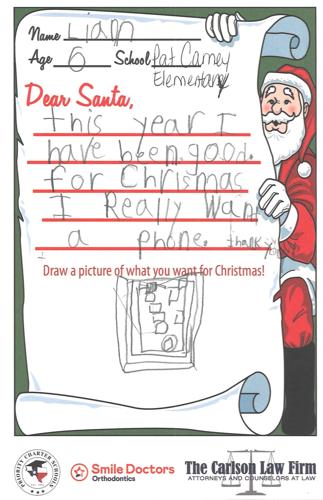 Name Liam
Age 6 School Pat Carney
Elementary
Dear Santa,
this year I
have been good.
for Christmas
I Really Wan
a phone. thank you
Draw a picture of what you want for Christmas!
PRIORITY CHARTER SCHOOLS
Smile Doctors
Orthodontics
The Carlson Law Firm
ATTORNEYS AND COUNSELORS AT LAW